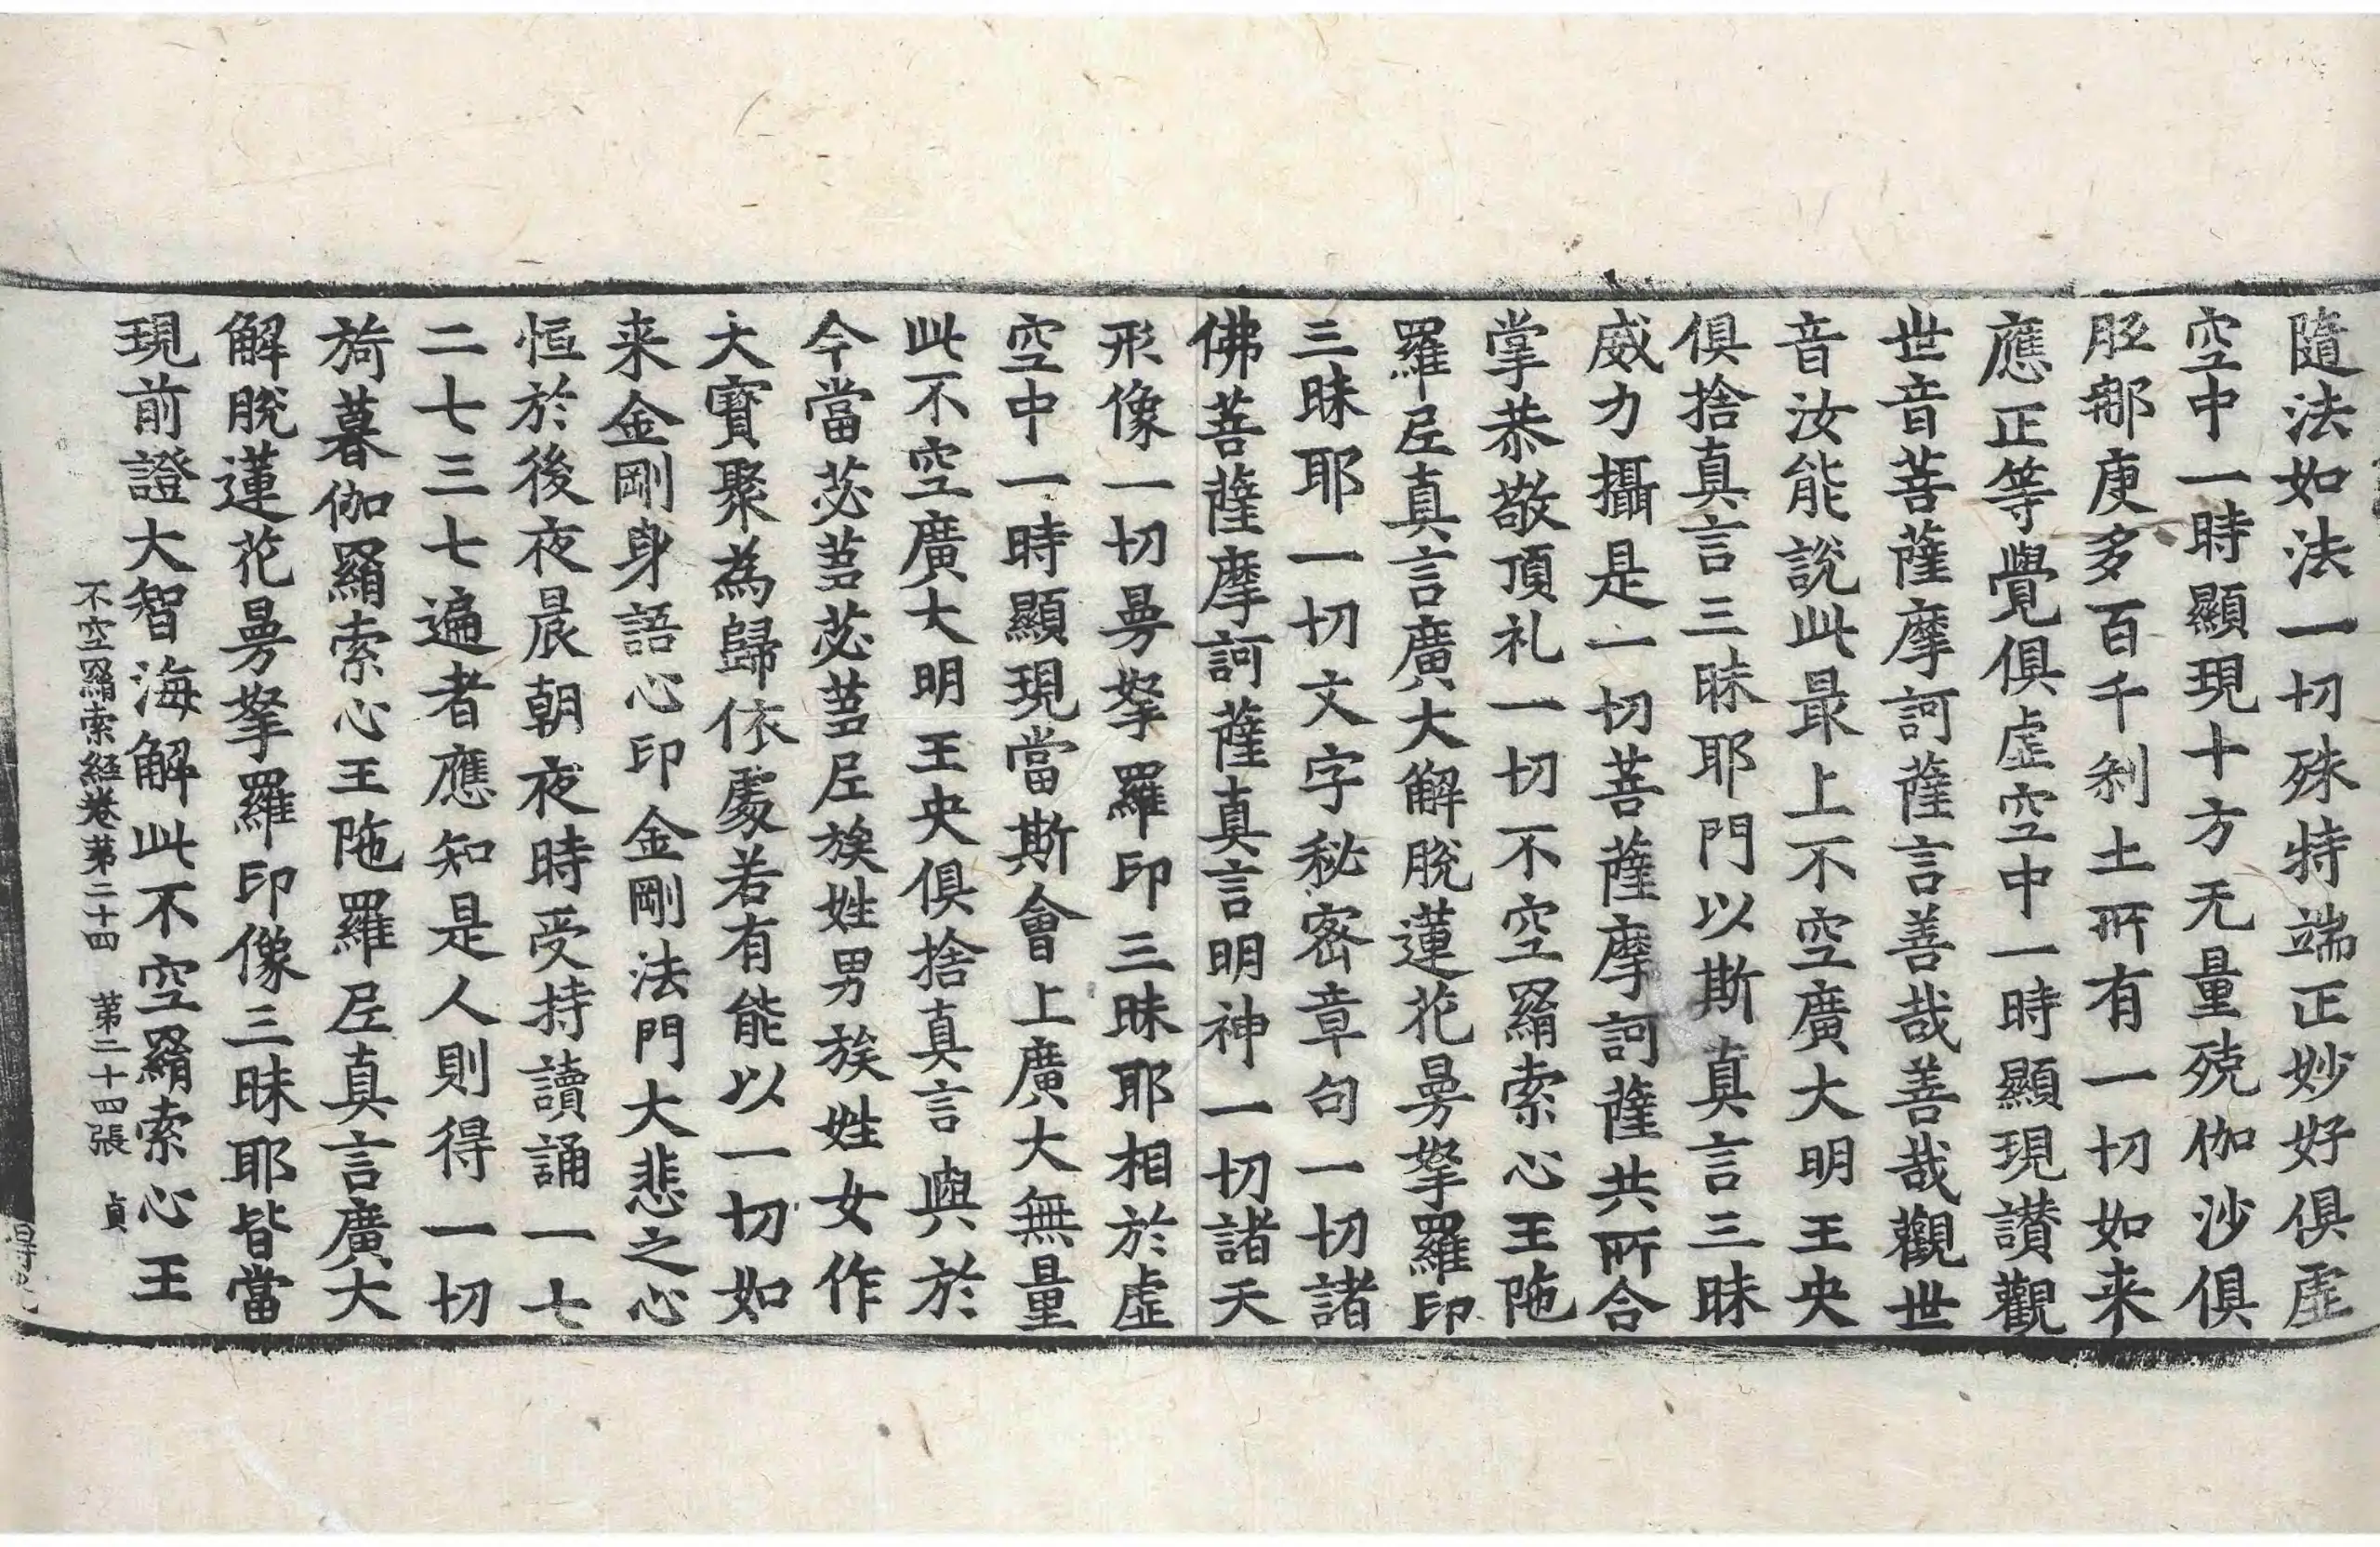 隨法如法一切殊特端正妙好俱虛
空中一時顯現十方无量殑伽沙俱
胝那庾多百千刹土所有一切如来
應正等覺俱虛空中一時顯現讃觀
世音菩薩摩訶薩言善哉善哉觀世
音汝能說此最上不空廣大明王央
俱捨真言三昧耶門以斯真言三昧
威力攝是一切菩薩摩訶薩共所合
掌恭敬頂礼一切不空羂索心王陁
羅尼真言廣大解脫蓮花曼拏羅印
三昧耶一切文字秘密章句一切諸
佛菩薩摩訶薩真言明神一切諸天
形像一切曼拏羅印三昧耶相於虛
空中一時顯現當斯會上廣大無量
此不空廣大明王央俱捨真言與於
今當苾芻苾芻尼族姓男族姓女作
大寶聚為歸依處若有能以一切如
来金剛身語心印金剛法門大悲之心
恒於後夜晨朝夜時受持讀誦一七
二七三七遍者應知是人則得一切
旖暮伽羂索心王陁羅尼真言廣大
解脫蓮花曼拏羅印像三昧耶皆當
現前證大智海解此不空羂索心王
不空羂索経卷第二十四 第二十四張 貞